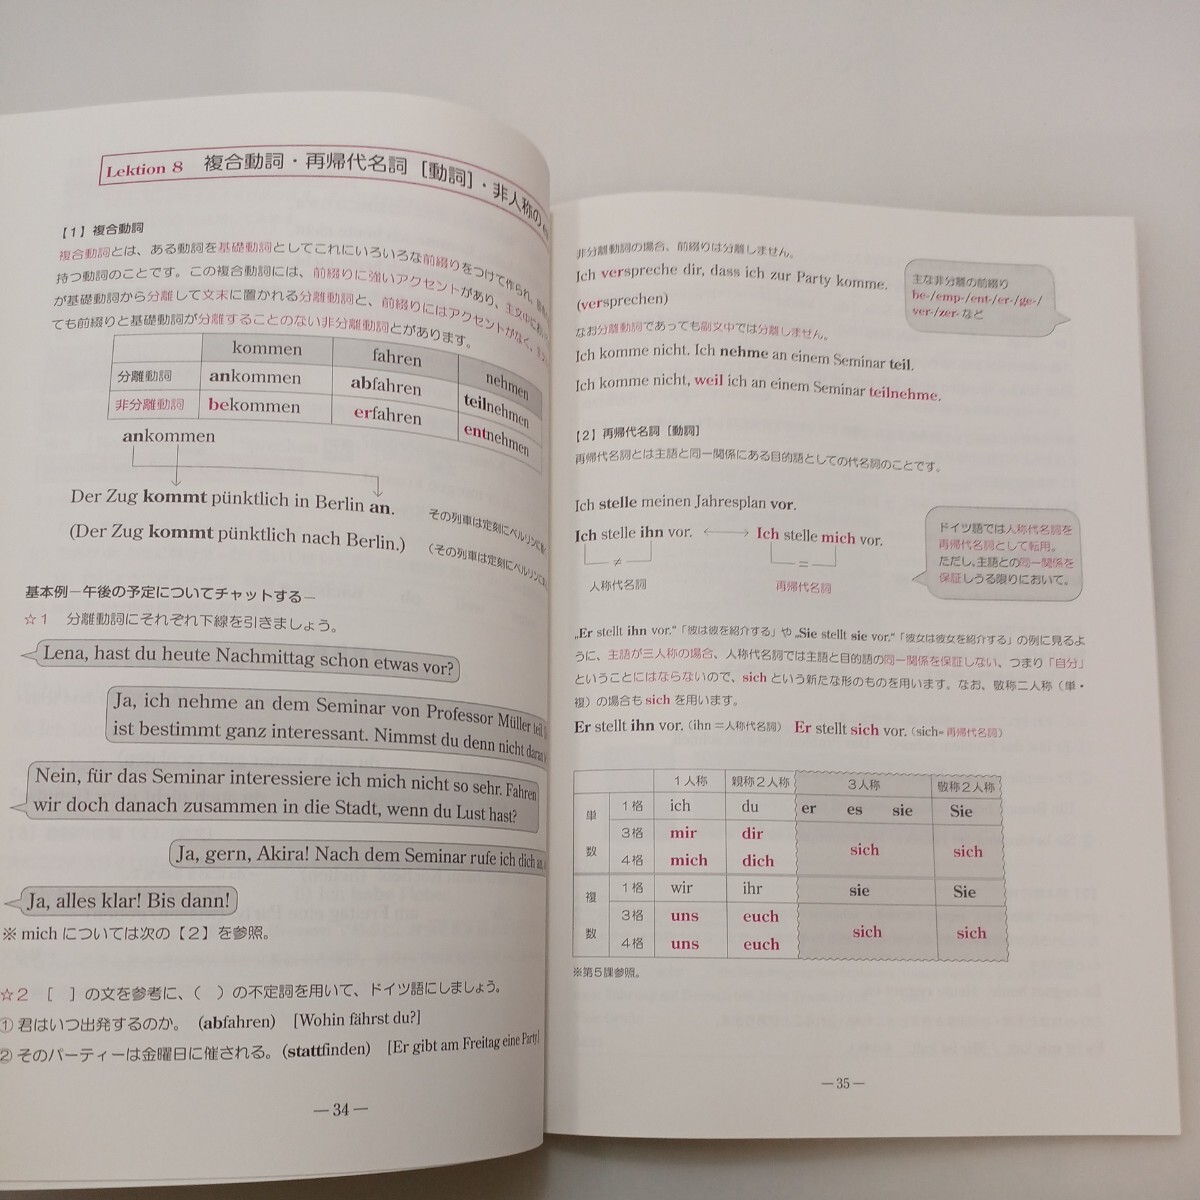 Lektion 8　複合動詞・再帰代名詞［動詞］・非人称の
【1】複合動詞
複合動詞とは、ある動詞を基礎動詞としてこれにいろいろな前綴りをつけて作られ、
持つ動詞のことです。この複合動詞には、前綴りに強いアクセントがあり、主文中にお
が基礎動詞から分離して文末に置かれる分離動詞と、前綴りにはアクセントがなく、
ても前綴りと基礎動詞が分離することのない非分離動詞とがあります。
kommen fahren nehmen
分離動詞 ankommen abfahren teilnehmen
非分離動詞 bekommen erfahren entnehmen
ankommen
Der Zug kommt pünktlich in Berlin an.　その列車は定刻にベルリンに
(Der Zug kommt pünktlich nach Berlin.)　（その列車は定刻にベルリンに
基本例－午後の予定についてチャットする－
☆1　分離動詞にそれぞれ下線を引きましょう。
Lena, hast du heute Nachmittag schon etwas vor?
Ja, ich nehme an dem Seminar von Professor Müller teil
ist bestimmt ganz interessant. Nimmst du denn nicht daran
Nein, für das Seminar interessiere ich mich nicht so sehr. Fahren
wir doch danach zusammen in die Stadt, wenn du Lust hast?
Ja, gern, Akira! Nach dem Seminar rufe ich dich an.
Ja, alles klar! Bis dann!
※ mich については次の【2】を参照。
☆2　［　］の文を参考に、（　）の不定詞を用いて、ドイツ語にしましょう。
① 君はいつ出発するのか。 (abfahren)　[Wohin fährst du?]
② そのパーティーは金曜日に催される。(stattfinden)　[Er gibt am Freitag eine Party]
— 34 —
非分離動詞の場合、前綴りは分離しません。
Ich verspreche dir, dass ich zur Party komme.
(versprechen)
主な非分離の前綴り
be-/emp-/ent-/er-/ge-/
ver-/zer- など
なお分離動詞であっても副文中では分離しません。
Ich komme nicht. Ich nehme an einem Seminar teil.
Ich komme nicht, weil ich an einem Seminar teilnehme.
【2】再帰代名詞［動詞］
再帰代名詞とは主語と同一関係にある目的語としての代名詞のことです。
Ich stelle meinen Jahresplan vor.
Ich stelle ihn vor. ←→ Ich stelle mich vor.
≠ =
人称代名詞 再帰代名詞
ドイツ語では人称代名詞を
再帰代名詞として転用。
ただし、主語との同一関係を
保証しうる限りにおいて。
„Er stellt ihn vor.“「彼は彼を紹介する」や „Sie stellt sie vor.“「彼女は彼女を紹介する」の例に見るよ
うに、主語が三人称の場合、人称代名詞では主語と目的語の同一関係を保証しない、つまり「自分」
ということにはならないので、sich という新たな形のものを用います。なお、敬称二人称（単・
複）の場合も sich を用います。
Er stellt ihn vor.（ihn＝人称代名詞）　Er stellt sich vor.（sich=再帰代名詞）
1人称 親称2人称 3人称 敬称2人称
単数 1格 ich du er es sie Sie
3格 mir dir sich sich
4格 mich dich
複数 1格 wir ihr sie Sie
3格 uns euch sich sich
4格 uns euch
※第5課参照。
— 35 —